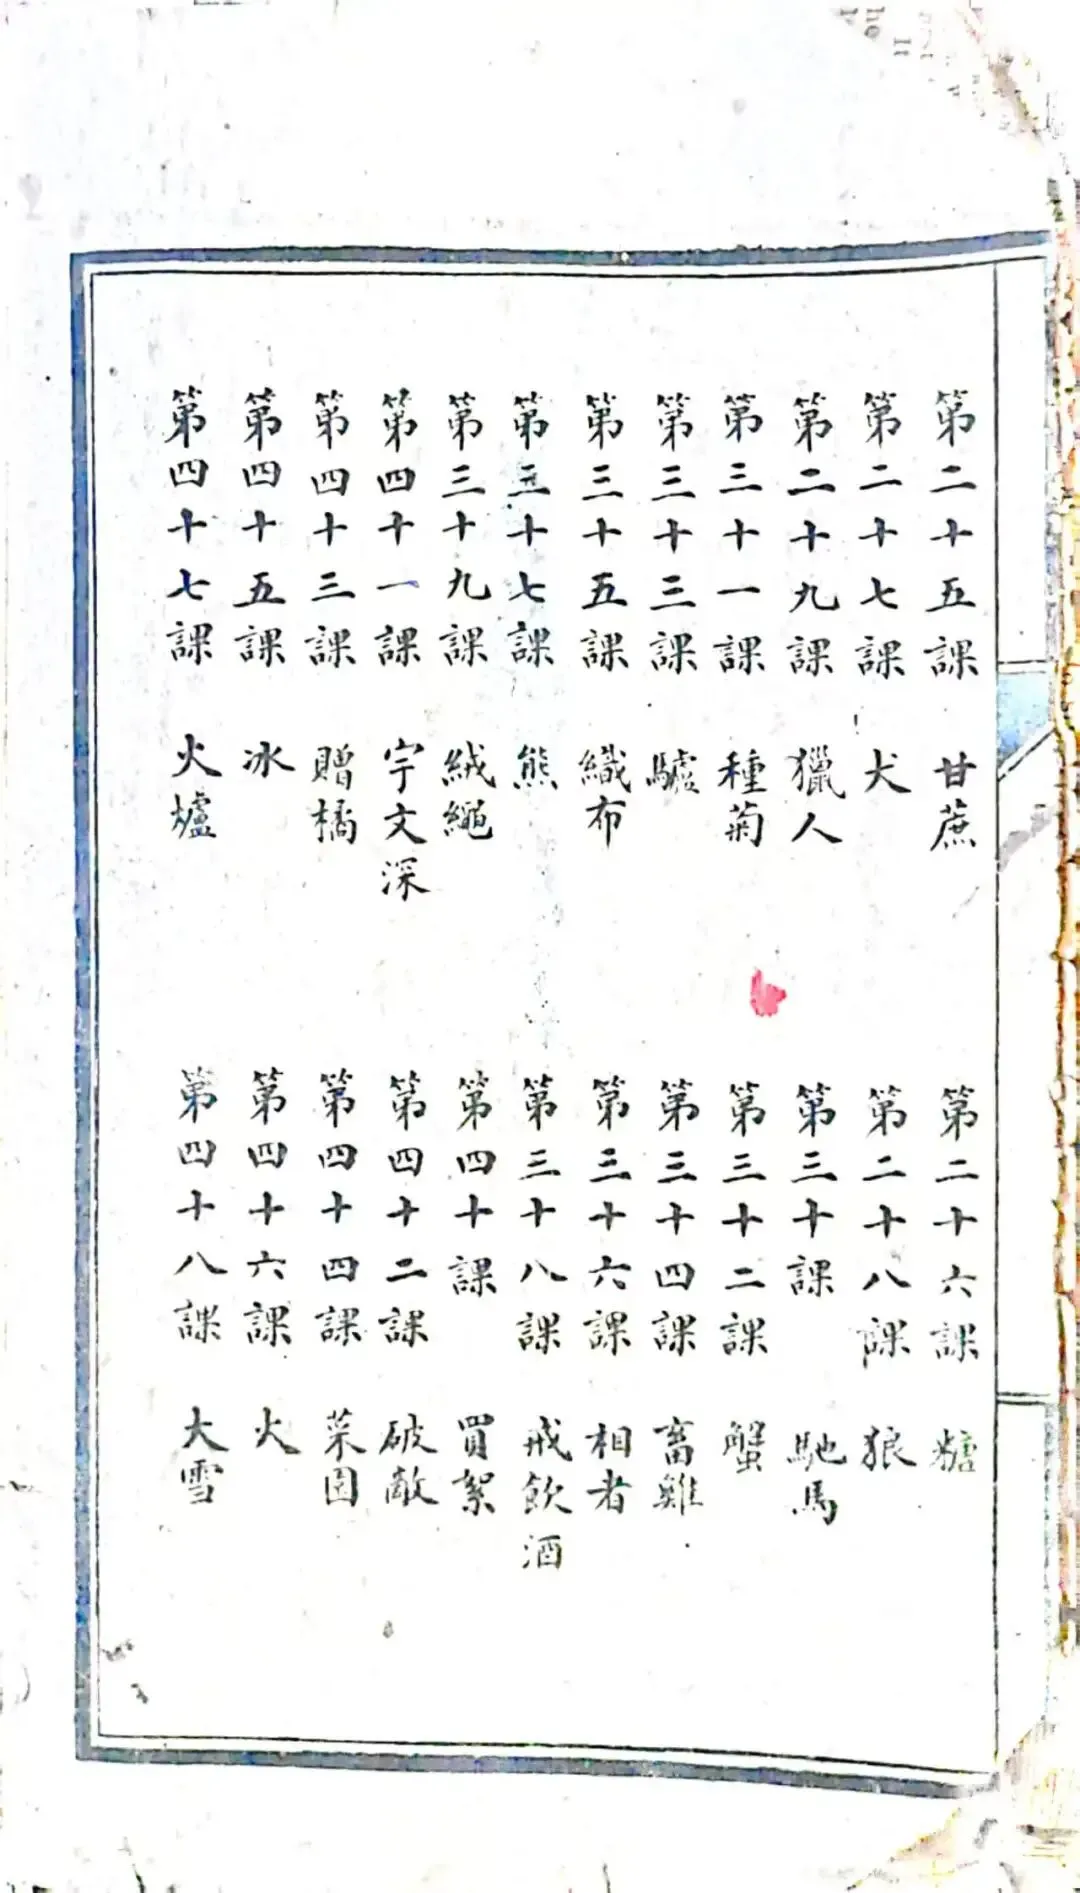 第二十五課 甘蔗
第二十六課 糖
第二十七課 犬
第二十八課 狼
第二十九課 獵人
第三十課 馳馬
第三十一課 種菊
第三十二課 蟹
第三十三課 驢
第三十四課 畜雞
第三十五課 織布
第三十六課 相者
第三十七課 熊
第三十八課 戒飲酒
第三十九課 絨繩
第四十課 買絮
第四十一課 宇文深
第四十二課 破敵
第四十三課 贈橘
第四十四課 菜園
第四十五課 冰
第四十六課 火
第四十七課 火爐
第四十八課 大雪